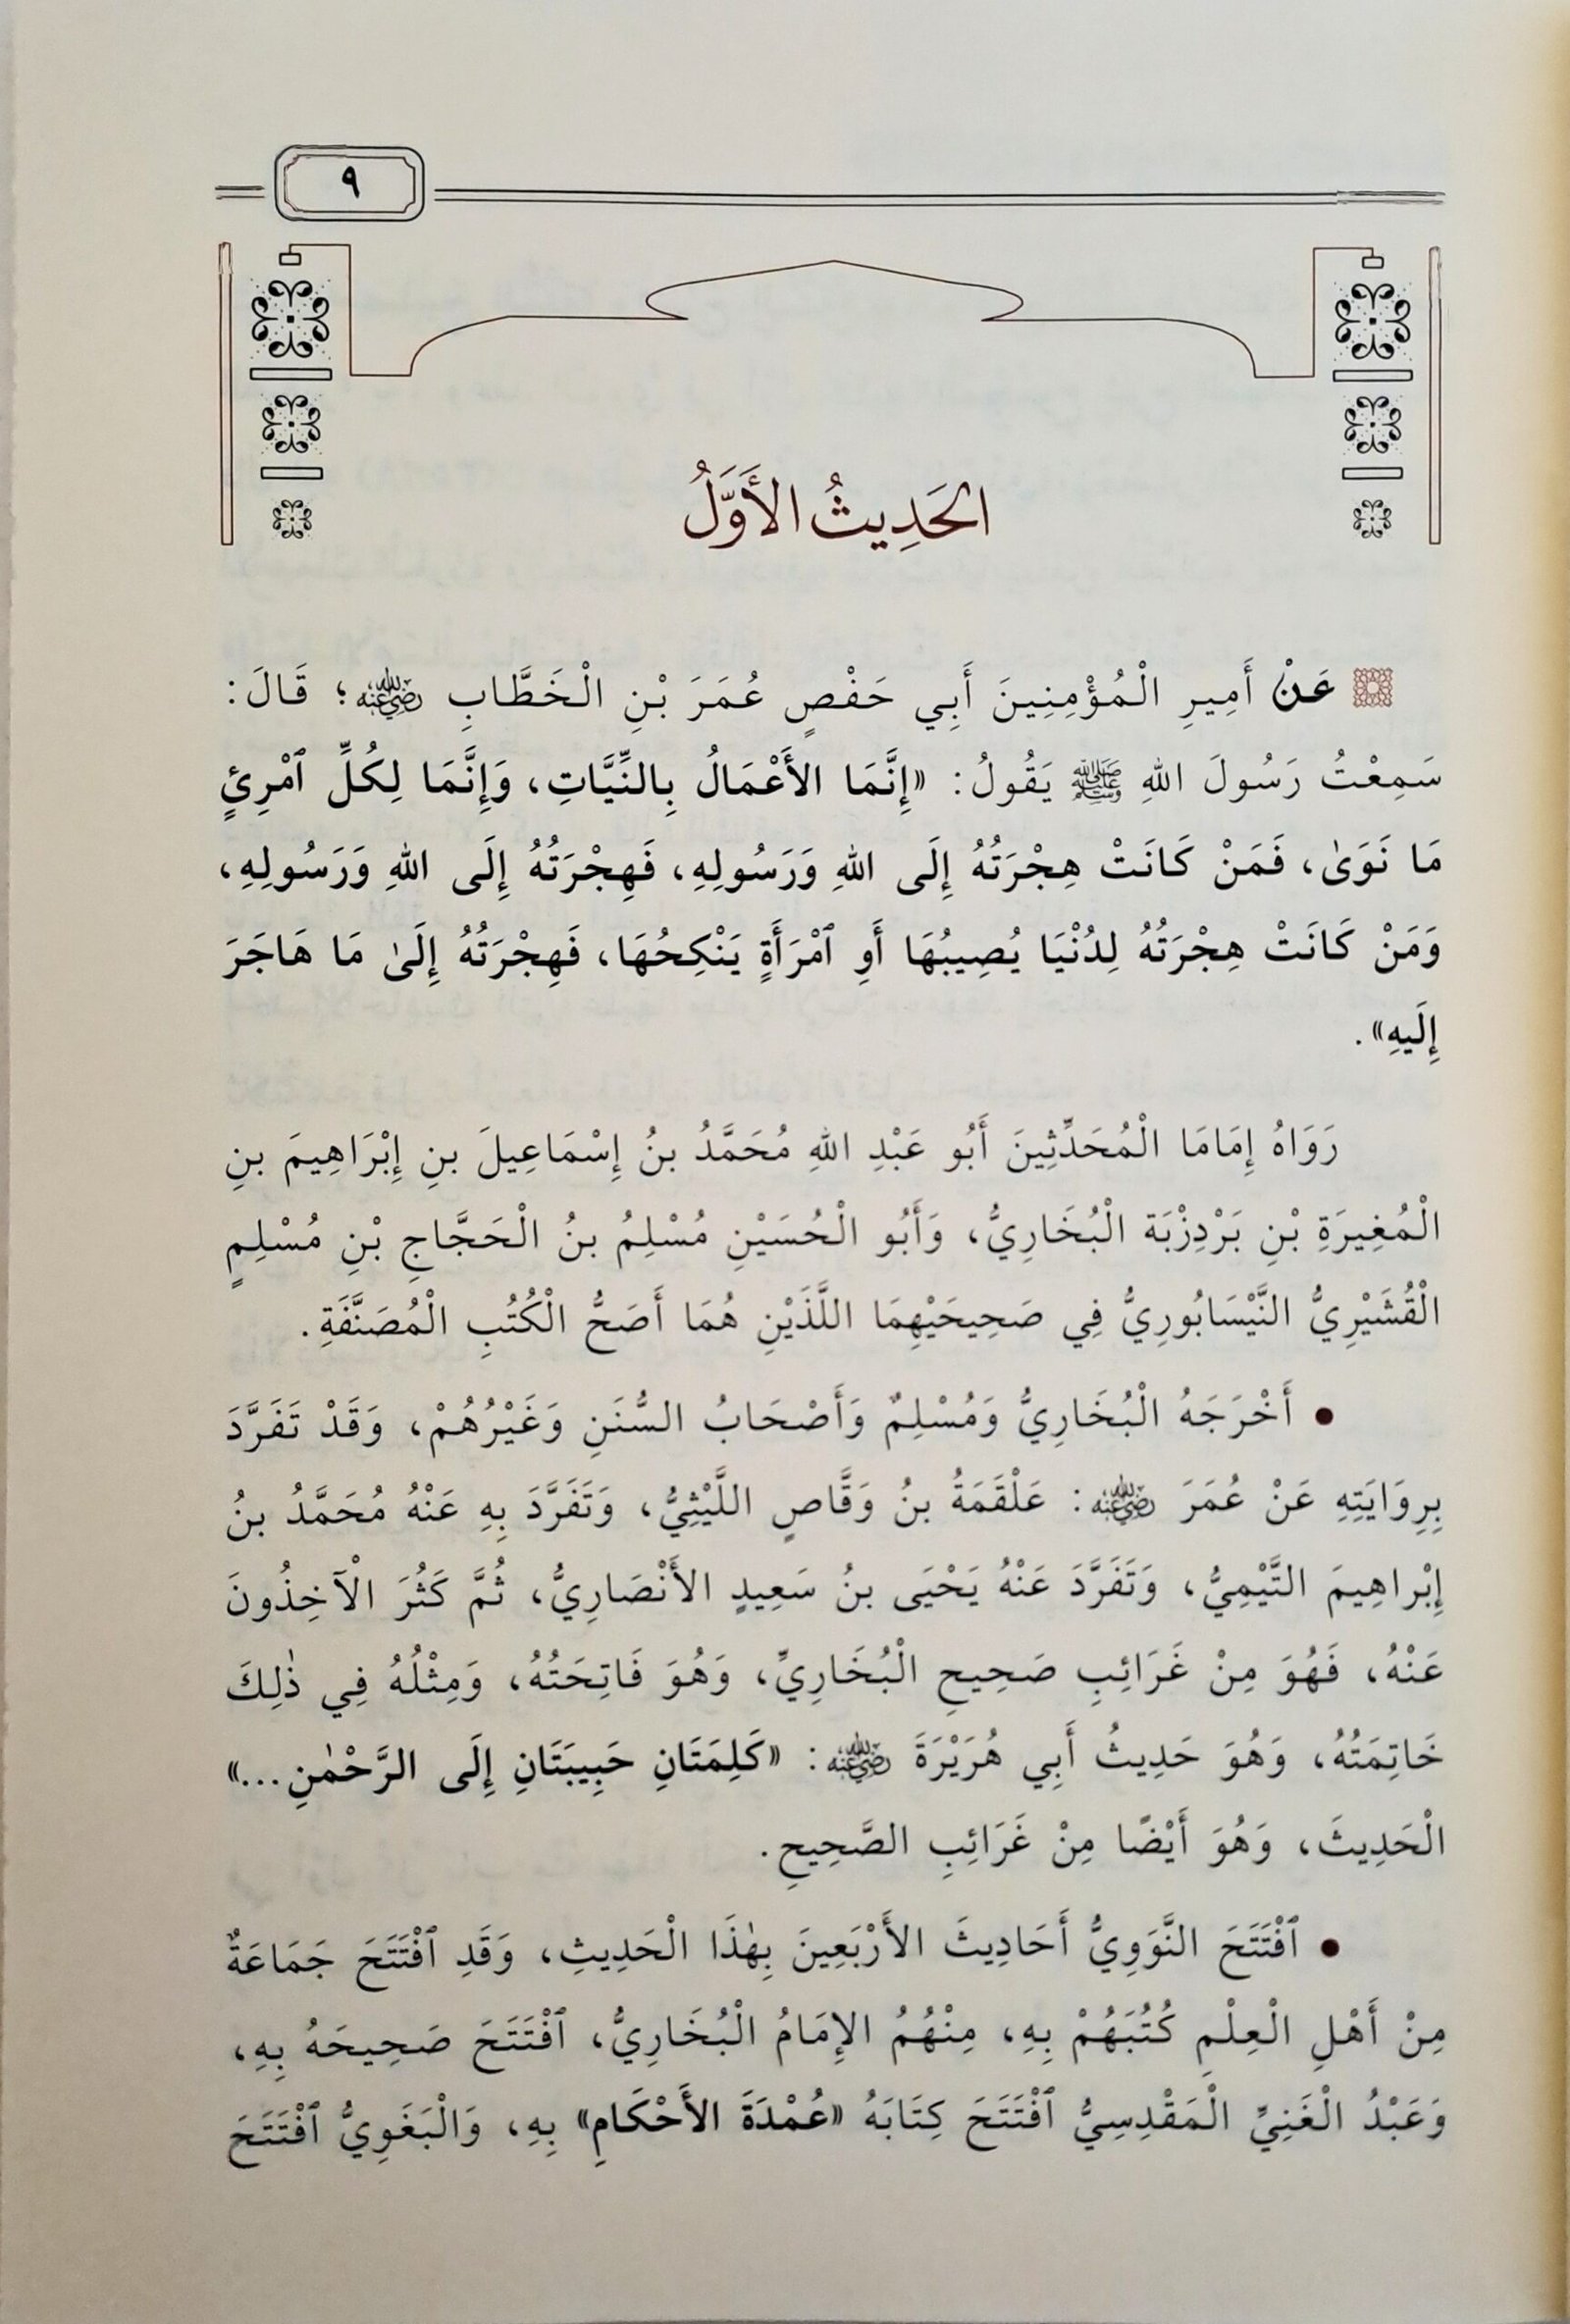 ٩
الحَدِيثُ الأَوَّلُ
عَنْ أَمِيرِ الْمُؤْمِنِينَ أَبِي حَفْصٍ عُمَرَ بْنِ الْخَطَّابِ رضي الله عنه؛ قَالَ:
سَمِعْتُ رَسُولَ اللهِ ﷺ يَقُولُ: «إِنَّمَا الأَعْمَالُ بِالنِّيَّاتِ، وَإِنَّمَا لِكُلِّ ٱمْرِئٍ
مَا نَوَىٰ، فَمَنْ كَانَتْ هِجْرَتُهُ إِلَى اللهِ وَرَسُولِهِ، فَهِجْرَتُهُ إِلَى اللهِ وَرَسُولِهِ،
وَمَنْ كَانَتْ هِجْرَتُهُ لِدُنْيَا يُصِيبُهَا أَوِ ٱمْرَأَةٍ يَنْكِحُهَا، فَهِجْرَتُهُ إِلَىٰ مَا هَاجَرَ
إِلَيهِ».
رَوَاهُ إِمَامَا الْمُحَدِّثِينَ أَبُو عَبْدِ اللهِ مُحَمَّدُ بنُ إِسْمَاعِيلَ بنِ إِبْرَاهِيمَ بنِ
الْمُغِيرَةِ بْنِ بَرْدِزْبَة الْبُخَارِيُّ، وَأَبُو الْحُسَيْنِ مُسْلِمُ بنُ الْحَجَّاجِ بْنِ مُسْلِمٍ
الْقُشَيْرِيُّ النَّيْسَابُورِيُّ فِي صَحِيحَيْهِمَا اللَّذَيْنِ هُمَا أَصَحُّ الْكُتُبِ الْمُصَنَّفَةِ.
• أَخْرَجَهُ الْبُخَارِيُّ وَمُسْلِمٌ وَأَصْحَابُ السُّنَنِ وَغَيْرُهُمْ، وَقَدْ تَفَرَّدَ
بِرِوَايَتِهِ عَنْ عُمَرَ رضي الله عنه: عَلْقَمَةُ بنُ وَقَّاصٍ اللَّيْثِيُّ، وَتَفَرَّدَ بِهِ عَنْهُ مُحَمَّدُ بنُ
إِبْراهِيمَ التَّيْمِيُّ، وَتَفَرَّدَ عَنْهُ يَحْيَى بنُ سَعِيدٍ الأَنْصَارِيُّ، ثُمَّ كَثُرَ الْآخِذُونَ
عَنْهُ، فَهُوَ مِنْ غَرَائِبِ صَحِيحِ الْبُخَارِيِّ، وَهُوَ فَاتِحَتُهُ، وَمِثْلُهُ فِي ذٰلِكَ
خَاتِمَتُهُ، وَهُوَ حَدِيثُ أَبِي هُرَيْرَةَ رضي الله عنه: «كَلِمَتَانِ حَبِيبَتَانِ إِلَى الرَّحْمٰنِ...»
الْحَدِيثَ، وَهُوَ أَيْضًا مِنْ غَرَائِبِ الصَّحِيحِ.
• ٱفْتَتَحَ النَّوَوِيُّ أَحَادِيثَ الأَرْبَعِينَ بِهٰذَا الْحَدِيثِ، وَقَدِ ٱفْتَتَحَ جَمَاعَةٌ
مِنْ أَهْلِ الْعِلْمِ كُتُبَهُمْ بِهِ، مِنْهُمُ الإِمَامُ الْبُخَارِيُّ، ٱفْتَتَحَ صَحِيحَهُ بِهِ،
وَعَبْدُ الْغَنِيِّ الْمَقْدِسِيُّ ٱفْتَتَحَ كِتَابَهُ «عُمْدَةَ الأَحْكَامِ» بِهِ، وَالْبَغَوِيُّ ٱفْتَتَحَ